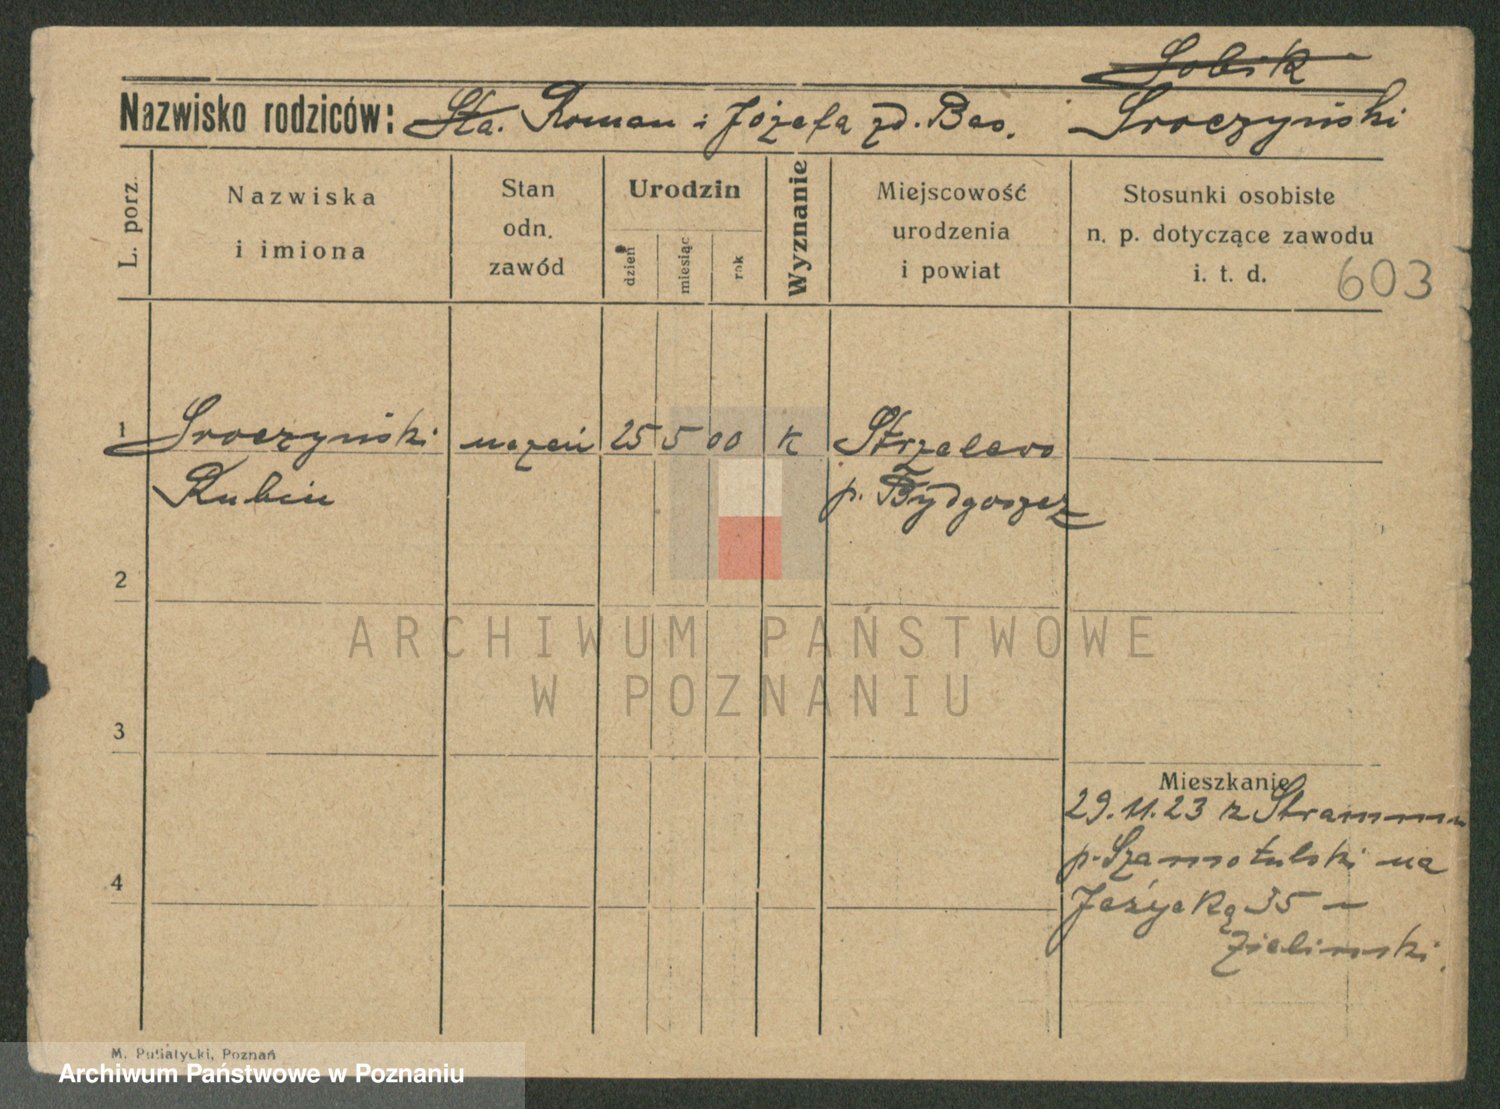 Sobik
Nazwisko rodziców: Sta. Roman i Józefa zd. Bas. Sroczyński
L. porz.
Nazwiska
i imiona
Stan
odn.
zawód
Urodzin
dzień
miesiąc
rok
Wyznanie
Miejscowość
urodzenia
i powiat
Stosunki osobiste
n. p. dotyczące zawodu
i. t. d.
603
1 Sroczyński uczeń 25 5 00 K Strzelewo
Rubin p. Bydgoszcz
2
3
4
Mieszkanie
29.11.23 z
p. Szamotulski na
Jeżycką 35
Zielinski.
ARCHIWUM PAŃSTWOWE
W POZNANIU
M. Putiatycki, Poznań
Archiwum Państwowe w Poznaniu